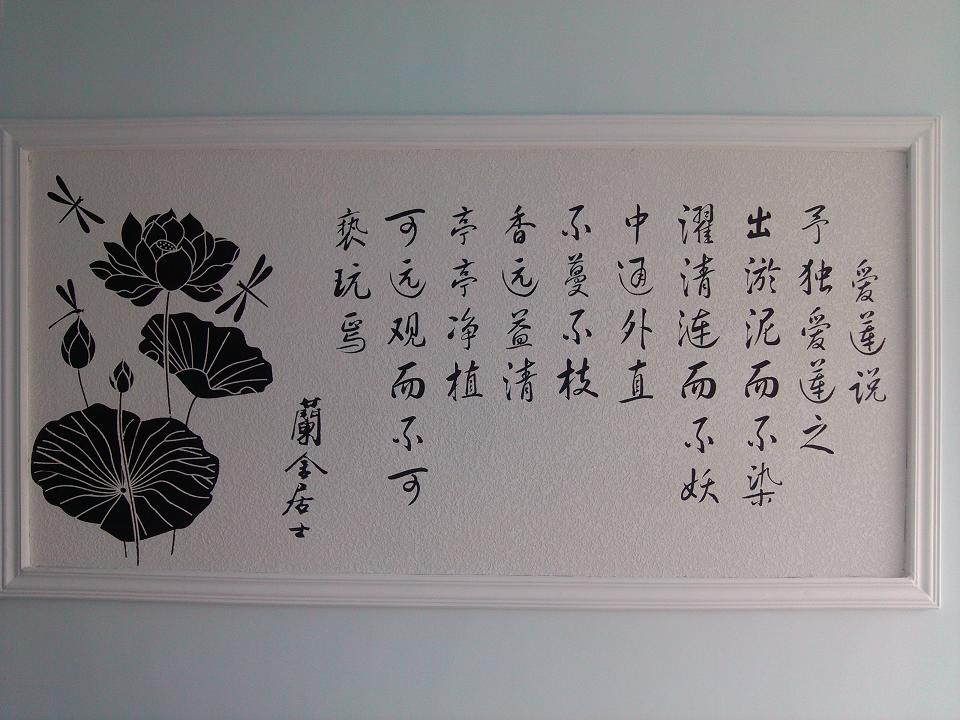 爱莲说
予独爱莲之
出淤泥而不染
濯清涟而不妖
中通外直
不蔓不枝
香远益清
亭亭净植
可远观而不可
亵玩焉
蘭舍居士